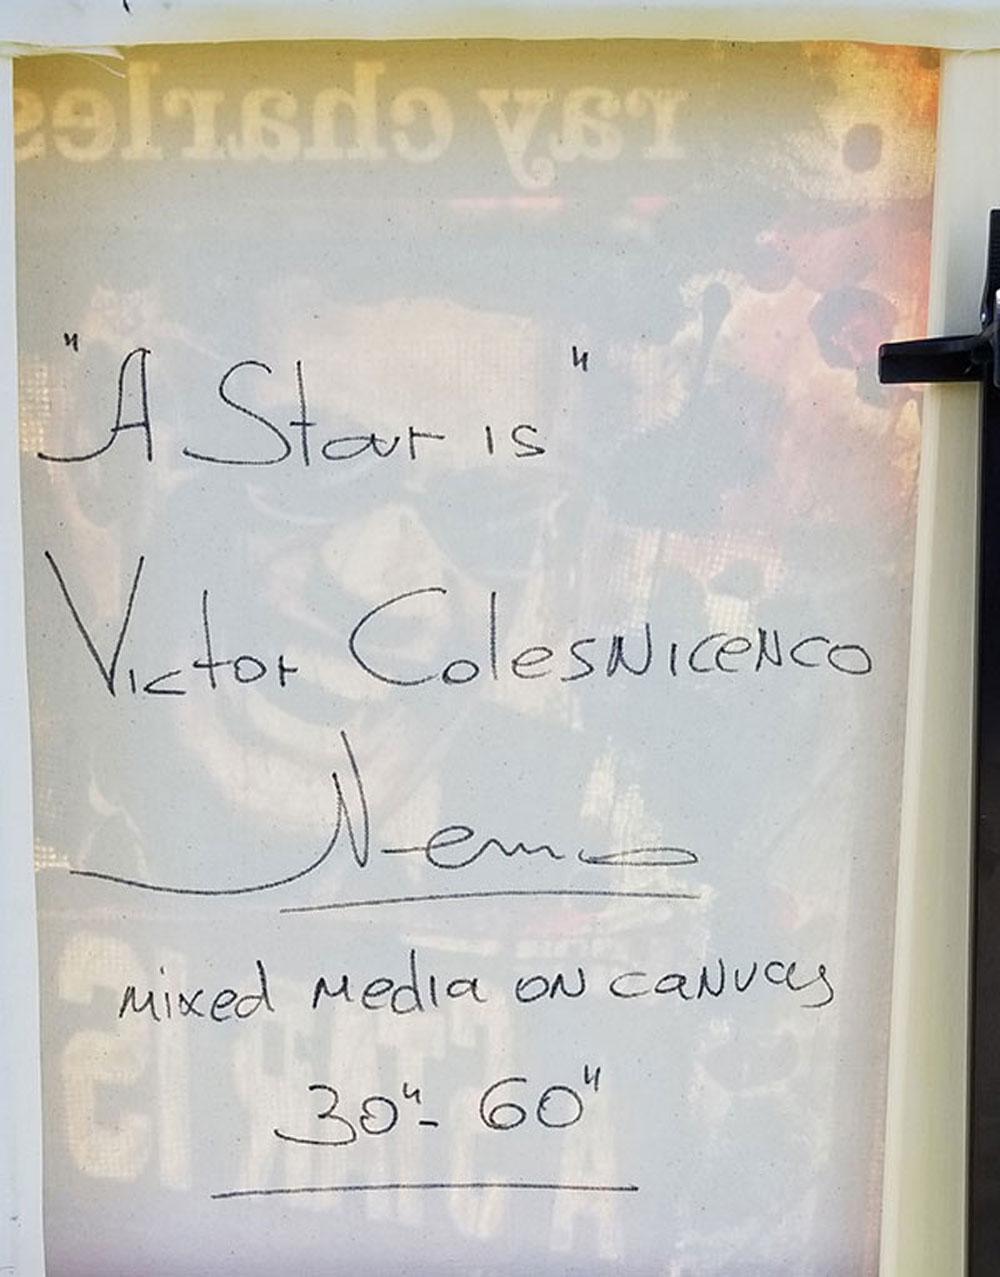 ray charles
"A Star is"
Victor Colesnicenco
Nemo
mixed media on canvas
30"- 60"
A STAR IS